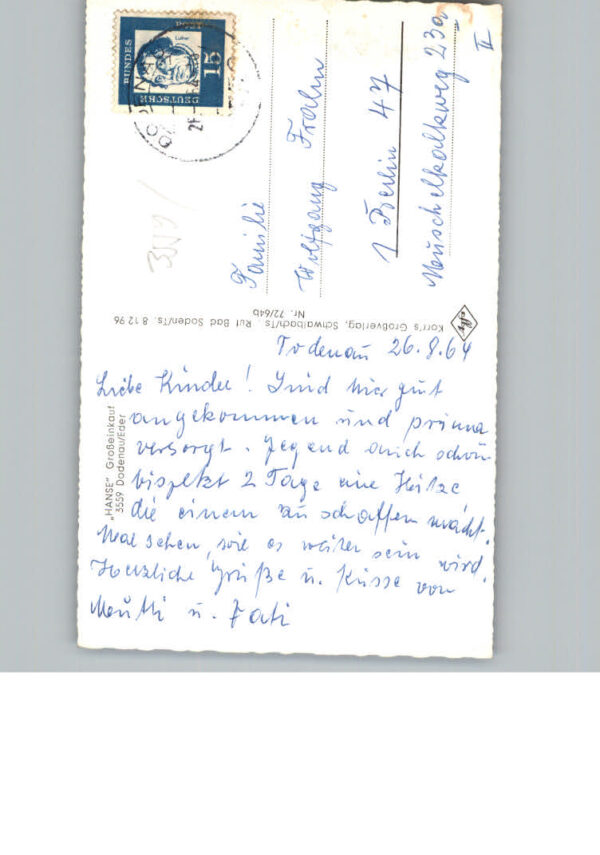 Dodenau 26.8.64
Liebe Kinder! Sind hier gut
angekommen und prima
versorgt. Gegend auch schön
bis jetzt 2 Tage eine Hitze
die einem zu schaffen macht.
Mal sehen, wie es weiter sein wird.
Herzliche Grüße u. Küsse von
Mutti u. Vati
Familie
Wolfgang
1 Berlin 47
Muschelkalkweg 23a
II
Korr's Großverlag, Schwalbach/Ts. Ruf Bad Soden/Ts. 8 12 96
Nr. 72/64b
„HANSE" Großeinkauf
3559 Dodenau/Eder
DEUTSCHE
BUNDES
POST
15
Luther